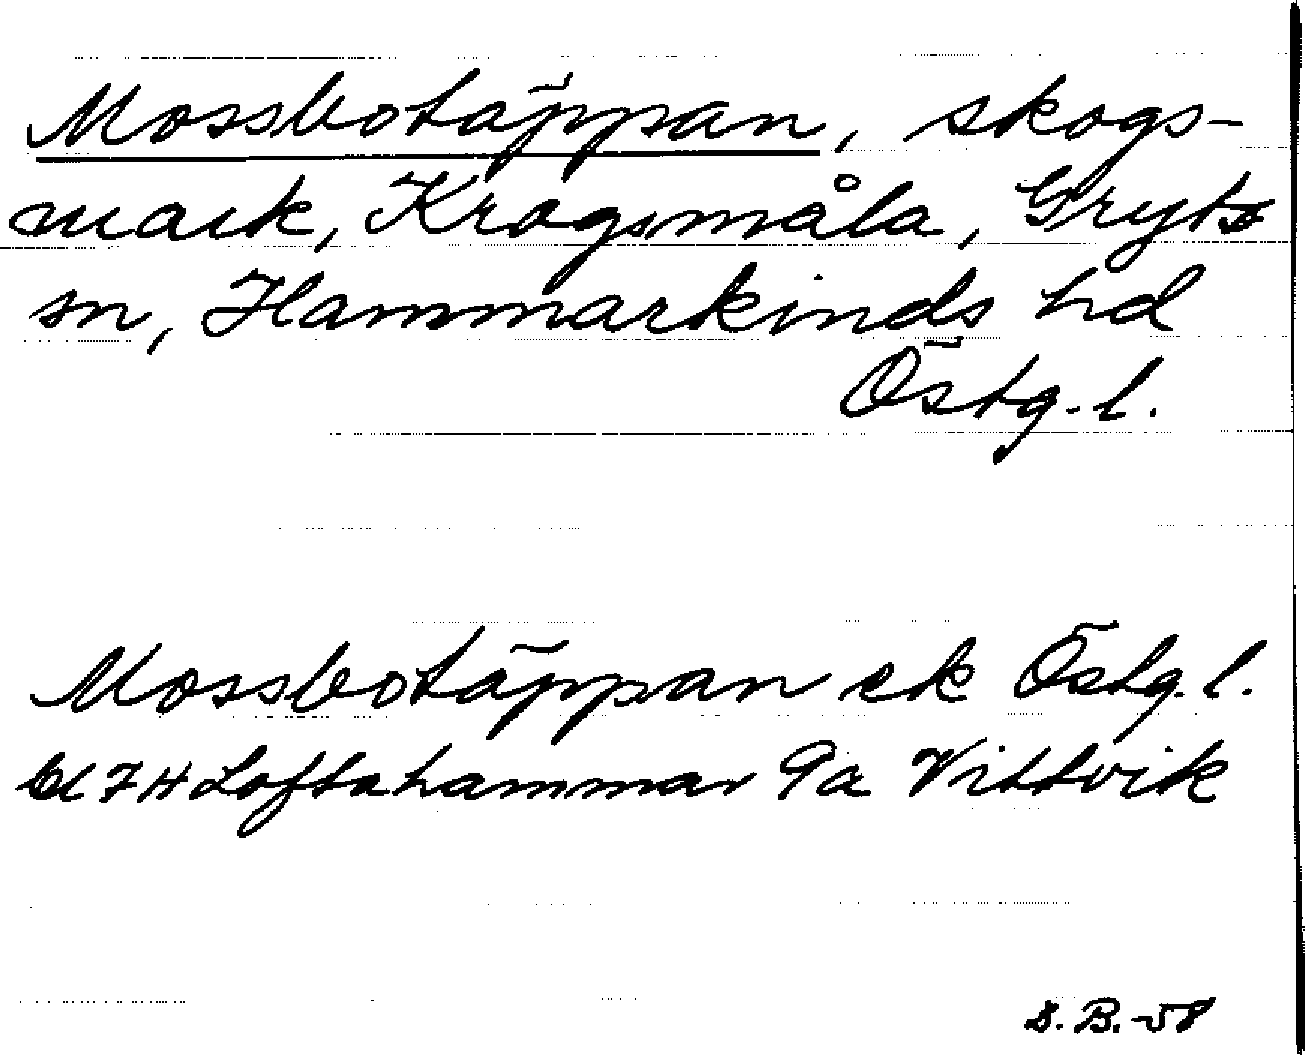 Mossbotäppan, skogs-
mark, Krogsmåla, Gryts
sn, Hammarkinds hd
Östg. l.
Mossbotäppan ek Östg. l.
7H Loftahammar 9a Vittvik
S. B. -58